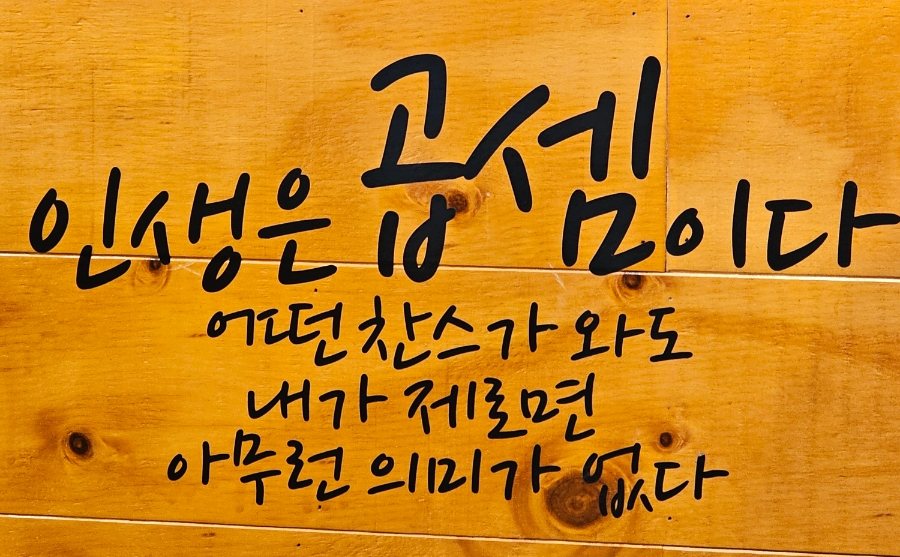 인생은 곱셈이다
어떤 찬스가 와도
내가 제로면
아무런 의미가 없다